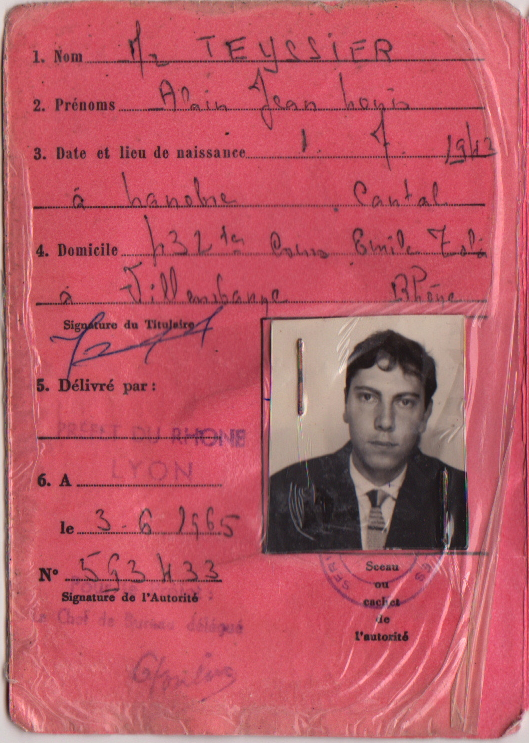 1. Nom Mr TEYSSIER
2. Prénoms Alain Jean Louis
3. Date et lieu de naissance 1. 7. 1942
à Lanobre Cantal
4. Domicile 132 ter Cours Emile Zola
à Villeurbanne Rhône
Signature du Titulaire
5. Délivré par :
PREFET DU RHONE
LYON
6. A
le 3-6 1965
N° 593433
Signature de l'Autorité
Le Chef de Bureau délégué
Sceau
ou
cachet
de
l'autorité